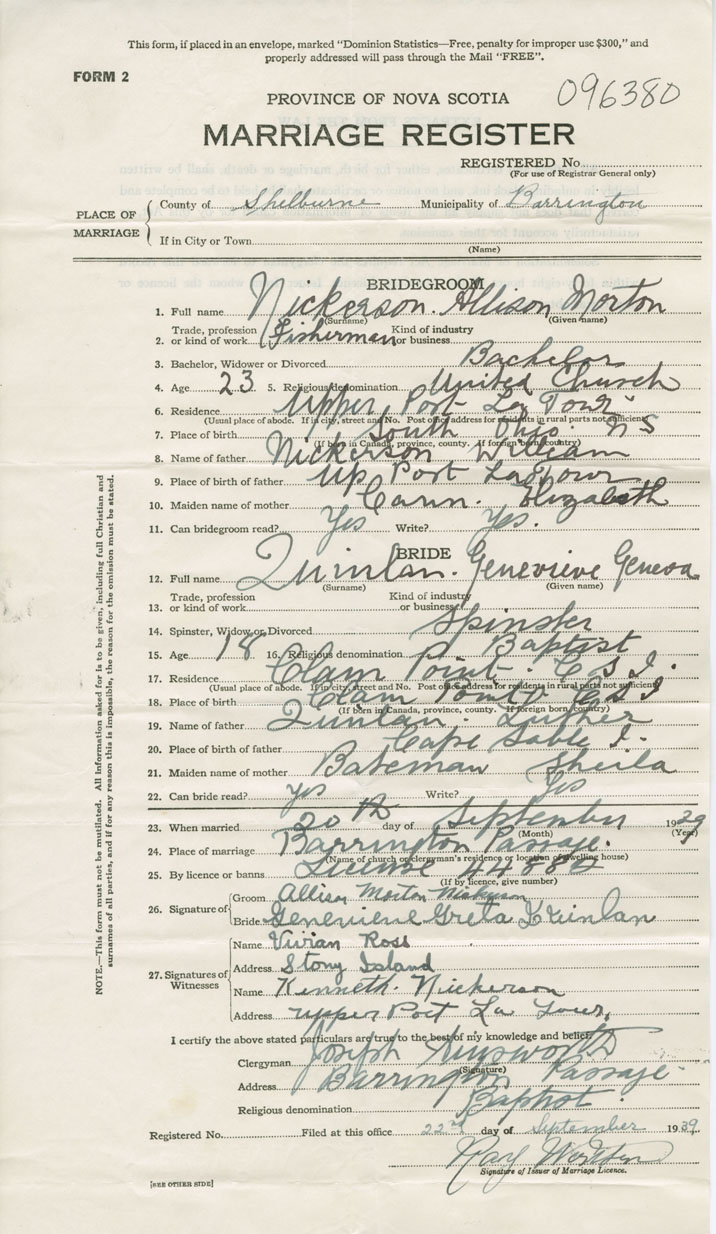 This form, if placed in an envelope, marked "Dominion Statistics—Free, penalty for improper use $300," and
properly addressed will pass through the Mail "FREE".
FORM 2
096380
PROVINCE OF NOVA SCOTIA
MARRIAGE REGISTER
REGISTERED No.
(For use of Registrar General only)
PLACE OF MARRIAGE
County of Shelburne Municipality of Barrington
If in City or Town
(Name)
BRIDEGROOM
1. Full name Nickerson. Allison Morton
(Surname) (Given name)
2. Trade, profession or kind of work Fisherman Kind of industry or business
3. Bachelor, Widower or Divorced Bachelor
4. Age 23 5. Religious denomination United Church
6. Residence Upper Port La Tour
(Usual place of abode. If in city, street and No. Post office address for residents in rural parts not sufficient)
7. Place of birth South Ohio. N S
(If born in Canada, province, county. If foreign born, country)
8. Name of father Nickerson William
9. Place of birth of father Up Port La Tour
10. Maiden name of mother Cann. Elizabeth
11. Can bridegroom read? Yes Write? Yes.
BRIDE
12. Full name Quinlan. Genevieve Geneva
(Surname) (Given name)
13. Trade, profession or kind of work Kind of industry or business
14. Spinster, Widow or Divorced Spinster
15. Age 18 16. Religious denomination Baptist
17. Residence Clam Point. C S I.
(Usual place of abode. If in city, street and No. Post office address for residents in rural parts not sufficient)
18. Place of birth Clam Point C S I
(If born in Canada, province, county. If foreign born, country)
19. Name of father Quinlan. Luther
20. Place of birth of father Cape Sable I.
21. Maiden name of mother Bateman Sheila
22. Can bride read? Yes Write? Yes
23. When married 20th day of September 1939
(Month) (Year)
24. Place of marriage Barrington Passage.
(Name of church or clergyman's residence or location of dwelling house)
25. By licence or banns License 44880
(If by licence, give number)
26. Signature of
Groom Allison Morton Nickerson
Bride Genevieve Greta Quinlan
27. Signatures of Witnesses
Name Vivian Ross
Address Stony Island
Name Kenneth. Nickerson
Address upper Port La Tour,
I certify the above stated particulars are true to the best of my knowledge and belief.
Clergyman Joseph Ainsworth
(Signature)
Address Barrington Passage
Religious denomination Baptist.
Registered No. Filed at this office 22nd day of September 1939.
Signature of Issuer of Marriage Licence.
[SEE OTHER SIDE]
NOTE.—This form must not be mutilated. All Information asked for is to be given, including full Christian and
surnames of all parties, and if for any reason this is impossible, the reason for the omission must be stated.